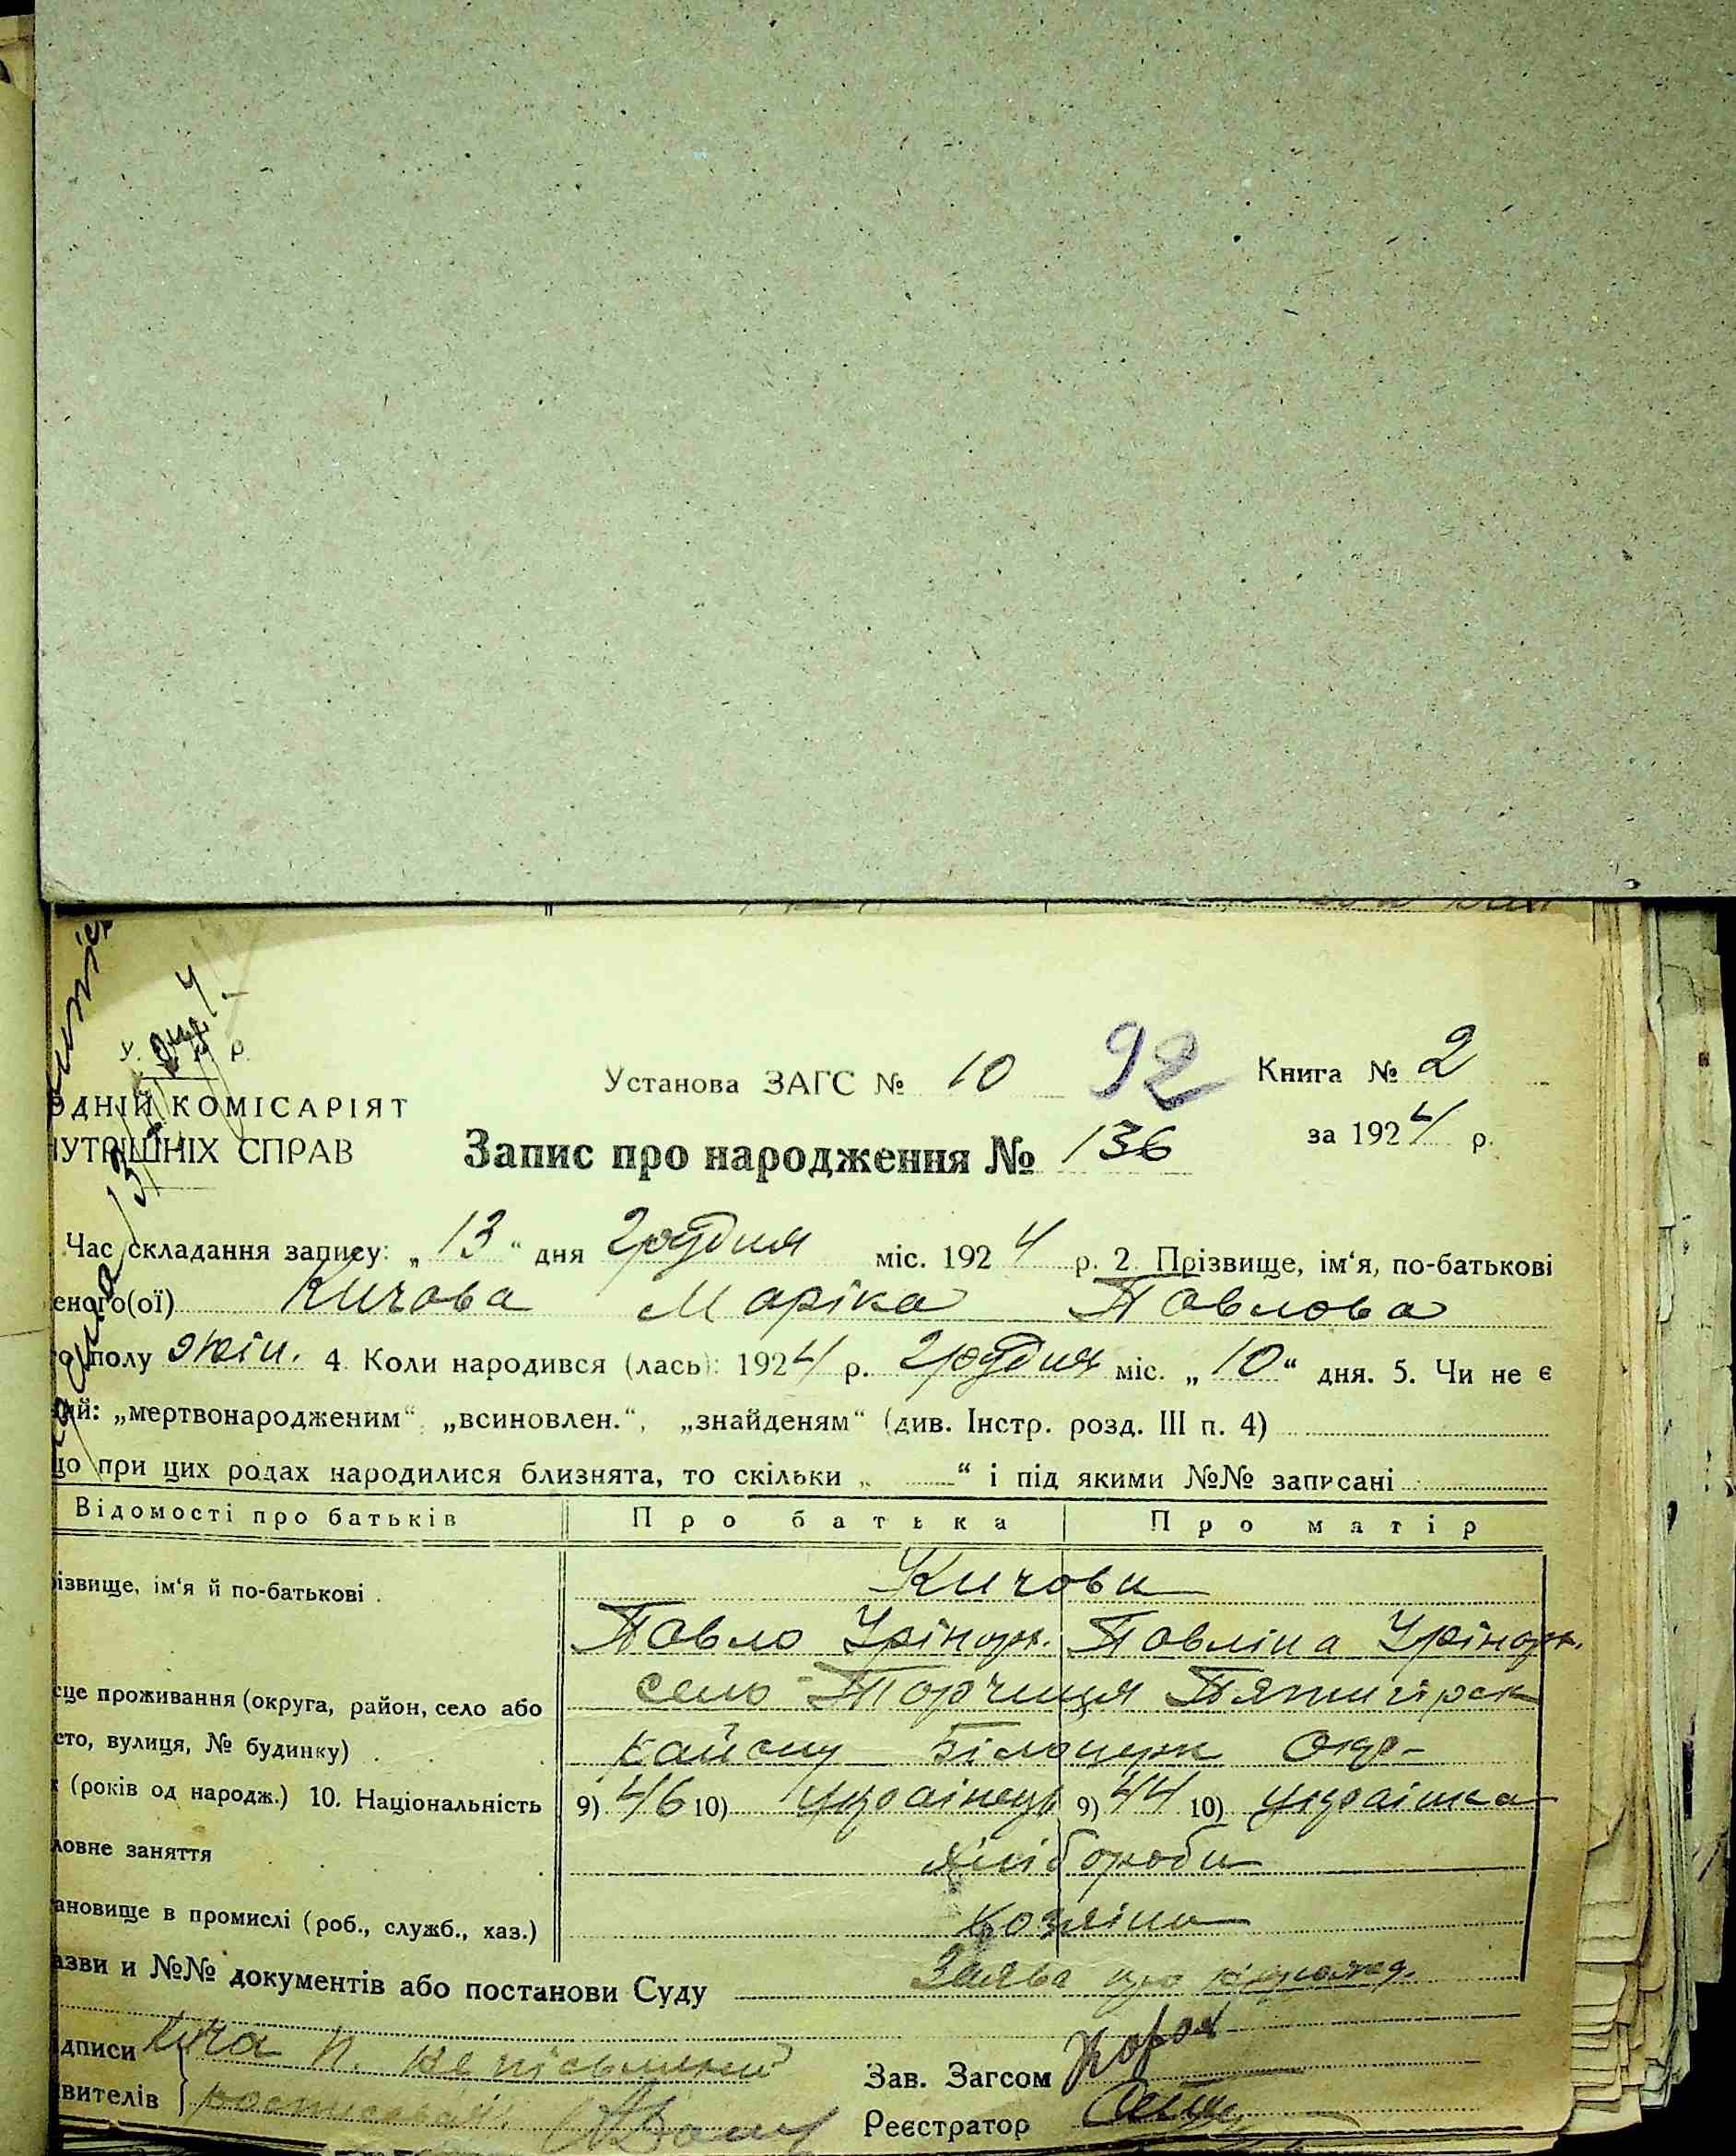 У. Р.
ОДНІЙ КОМІСАРІЯТ
НУТРІШНІХ СПРАВ
Установа ЗАГС № 10
92
Книга № 2
Запис про народження № 136
за 1924 р.
Час складання запису: „13“ дня Грудня міс. 1924 р. 2. Прізвище, ім‘я, по-батькові
еного(ої) Кичова Маріка Павлова
полу жін. 4 Коли народився (лась): 1924 р. грудня міс. „10“ дня. 5. Чи не є
ий: „мертвонародженим“ „всиновлен.“, „знайденям“ (див. Інстр. розд. III п. 4)
що при цих родах народилися близнята, то скільки „ “ і під якими №№ записані
Відомості про батьків Про батька Про матір
ізвище, ім‘я й по-батькові Кичови
Павло Грігор. Павліна Грігор.
сце проживання (округа, район, село або село Торчиця Пятигірск
сто, вулиця, № будинку) Білоцерк Окр-
(років од народж.) 10. Національність 9) 46 10) Українець 9) 44 10) Українка
ловне заняття хлібороби
ановище в промислі (роб., служб., хаз.) Хозяіни
азви и №№ документів або постанови Суду Заява про
дписи Кича П. не письменний
Зав. Загсом
вителів
Реєстратор